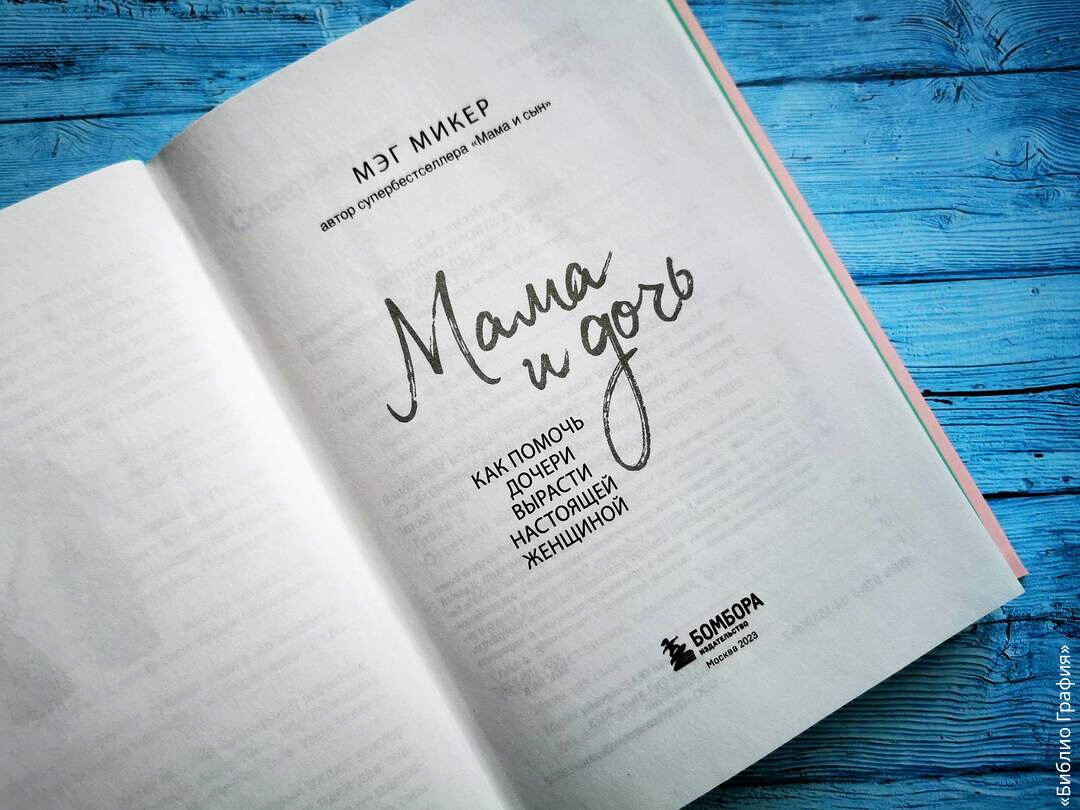 МЭГ МИКЕР
автор супербестселлера «Мама и сын»
Мама
и дочь
КАК ПОМОЧЬ
ДОЧЕРИ
ВЫРАСТИ
НАСТОЯЩЕЙ
ЖЕНЩИНОЙ
БОМБОРА
ИЗДАТЕЛЬСТВО
Москва 2023
«Библио Графия»